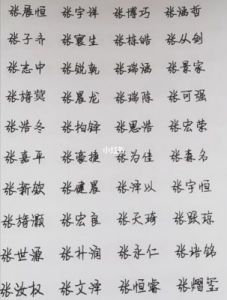 张展恒 张宇祥 张博巧 张涵哲
张子齐 张寰生 张栋皓 张从剑
张志中 张锐乾 张瑞涵 张景家
张晨龙 张瑞陈 张可强
张浩冬 张思浩 张宏荣
张嘉平 张豪捷 张为佳 张森名
小红书
张新钦 张健晨 张泽以 张宇恒
张宏良 张天琦
张世源 张朴润 张永仁 张培铭
张汝权 张文泽 张恒睿 张熠玺